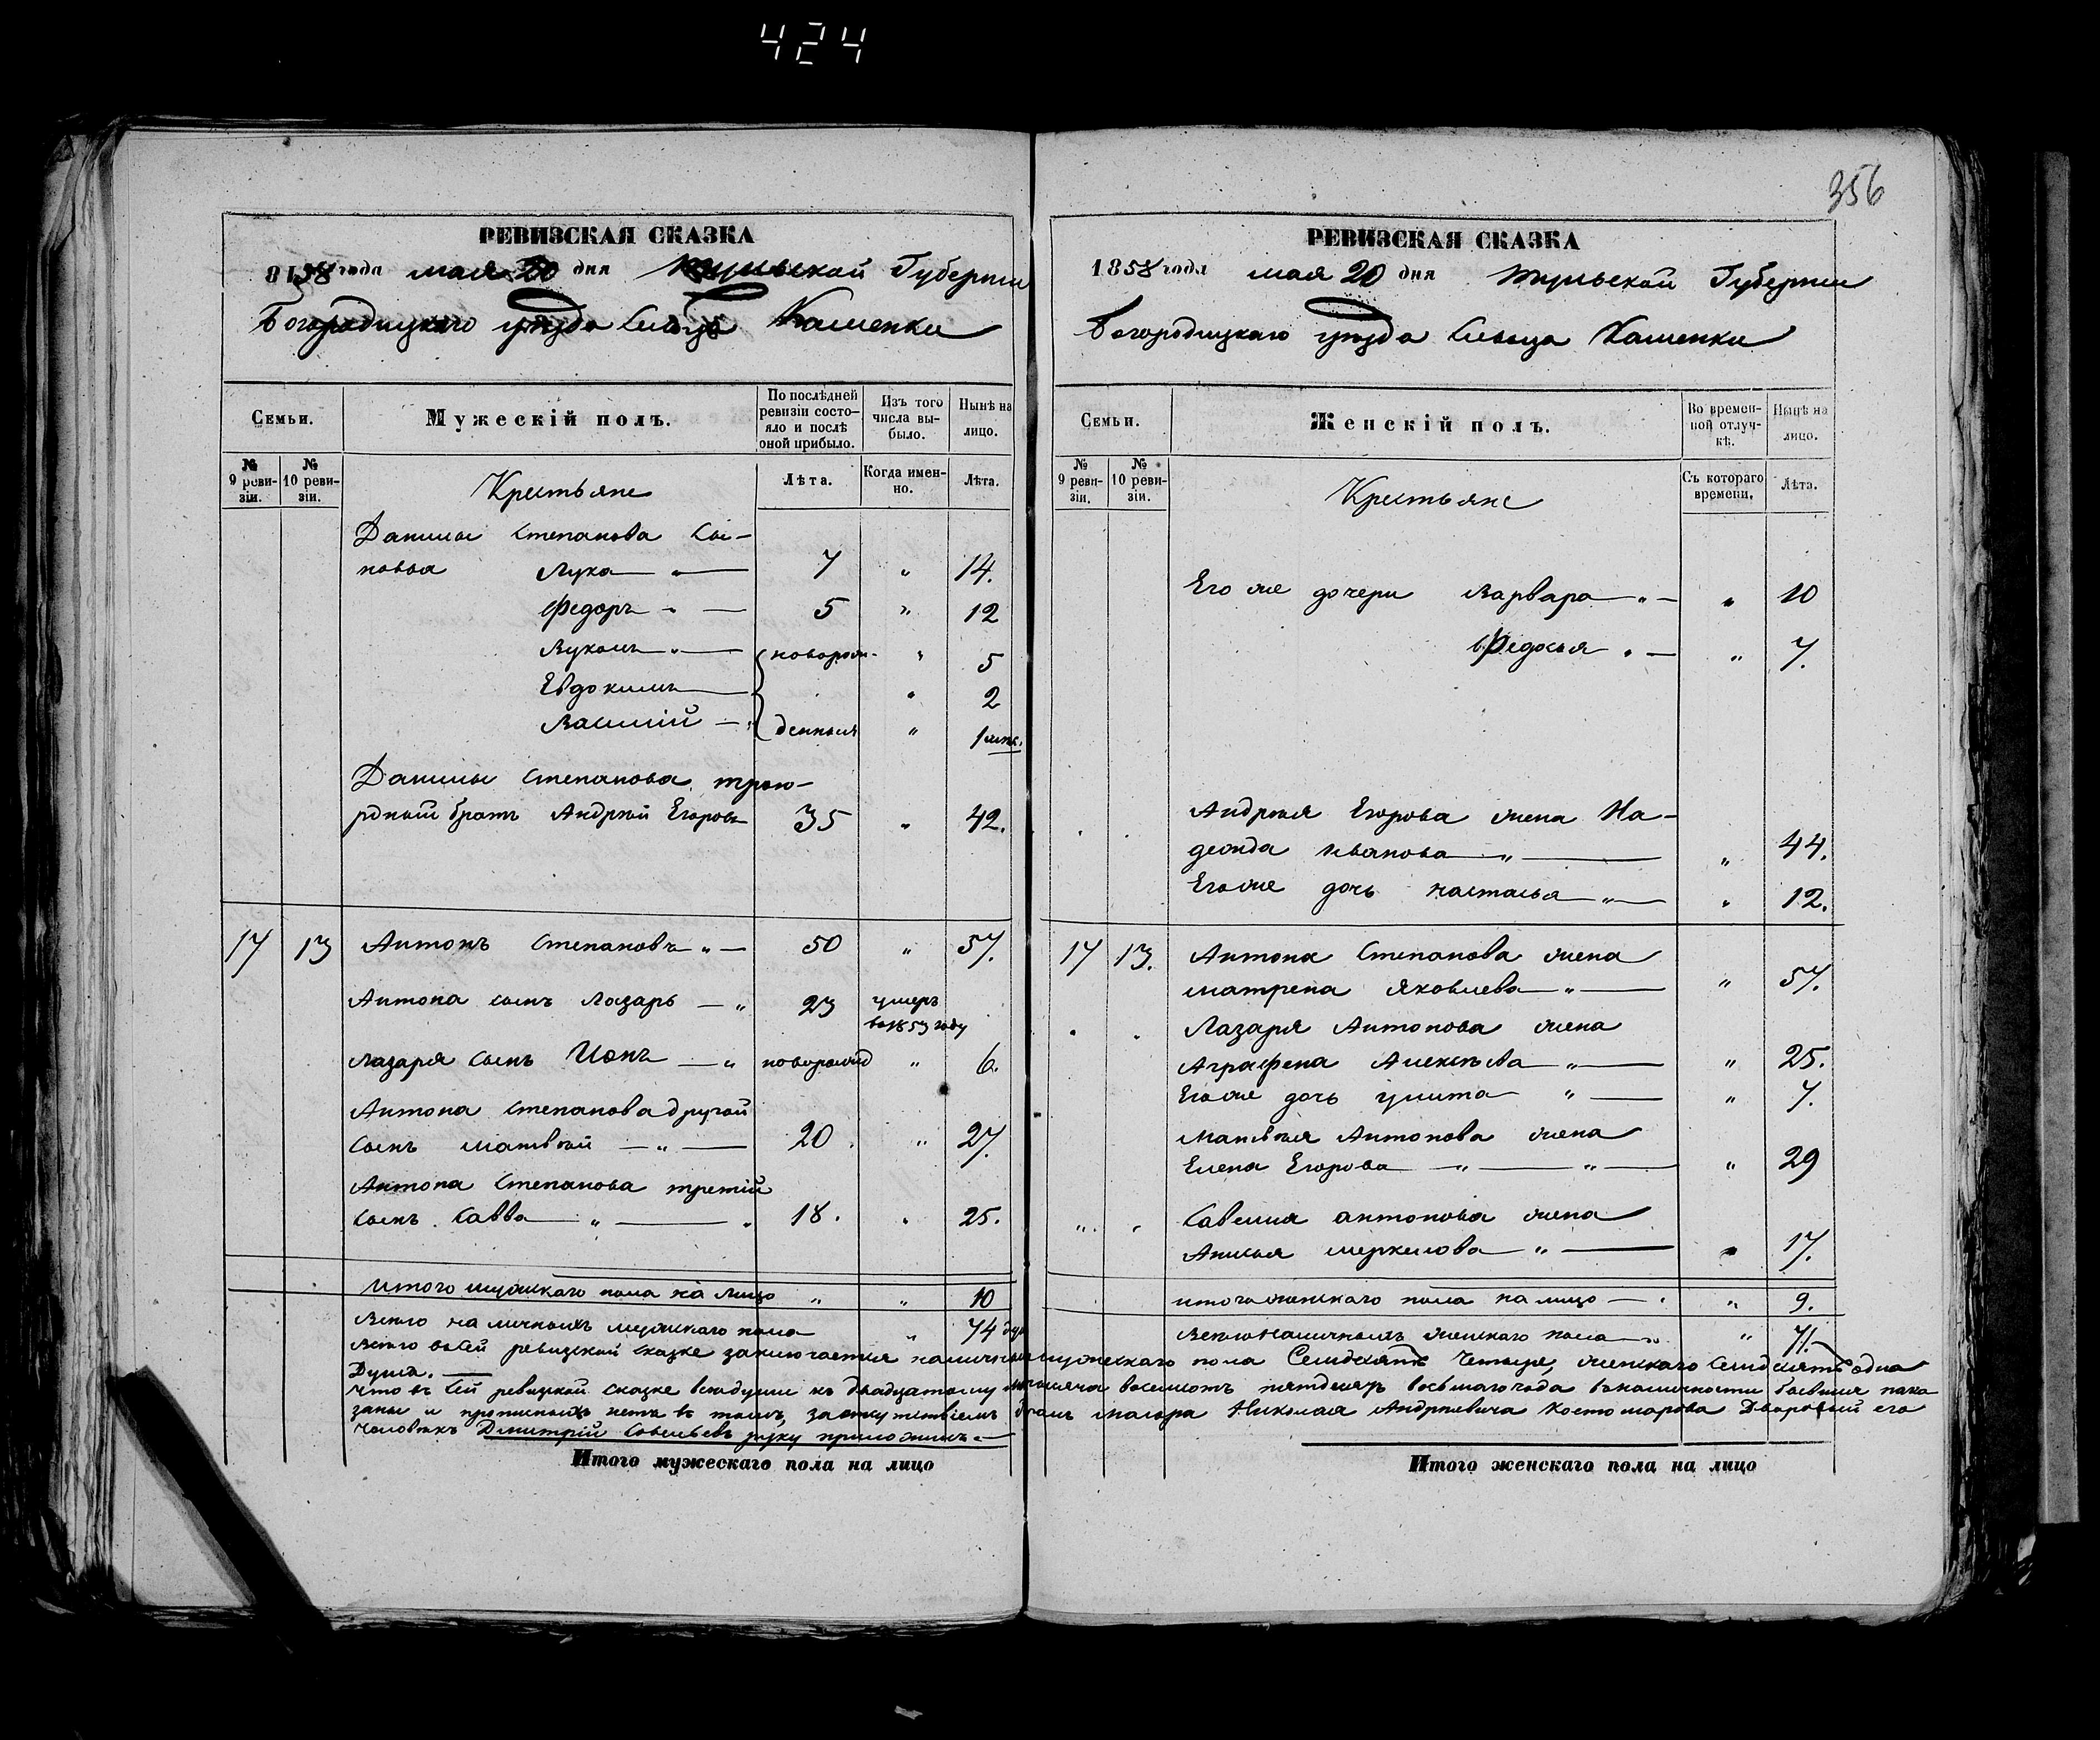 424
356
РЕВИЗСКАЯ СКАЗКА
8158 года мая 20 дня Тульской Губернии
Богородицкаго уѣзда Сельца Каменки
Семьи.
Мужескій полъ.
По послѣдней ревизіи состояло и послѣ оной прибыло.
Изъ того числа выбыло.
Нынѣ на лицо.
№ 9 ревизіи.
№ 10 ревизіи.
Крестьяне
Лѣта.
Когда именно.
Лѣта.
Данилы Степанова сы-
новья Лука — " — 7 " 14.
Федоръ " — 5 " 12
Вуколъ " — новорож- " 5
Евдокимъ — " 2
Василій — " денныя " 1 мѣс.
Данилы Степанова трою-
родный братъ Андрей Егоровъ 35 " 42.
17 13 Антонъ Степановъ " — 50 " 57.
Антона сынъ Лазарь — " 23 умеръ
въ 1853 году
Лазаря сынъ Іонъ — " новорожд " 6.
Антона Степанова другой
сынъ Матвѣй — " — 20 . " 27.
Антона Степанова третій
сынъ Савва — " — " 18. " 25.
Итого мужскаго пола на лицо " " 10
Всего наличныхъ мужскаго пола " 74 душ
РЕВИЗСКАЯ СКАЗКА
1858 года мая 20 дня Тульской Губернии
Богородицкаго уѣзда Сельца Каменки
Семьи.
Женскій полъ.
Во временной отлучкѣ.
Нынѣ на лицо.
№ 9 ревизіи.
№ 10 ревизіи.
Крестьяне
Съ котораго времени.
Лѣта.
Его же дочери Варвара " — " 10
Федосья " — " 7.
Андрея Егорова жена На-
дежда Иванова — " — " 44.
Его же дочь Настасья — " — " 12.
17 13. Антона Степанова жена
Матрена Яковлева — " — " 57.
Лазаря Антонова жена
Аграфена Алексѣева — " — " 25.
Его же дочь Улита " — " 7.
Матвѣя Антонова жена
Елена Егорова — " — " — " 29
Савелия Антонова жена
Анисья Меркулова — " — " 17.
Итого женскаго пола на лицо — " " 9.
Всего наличныхъ женскаго пола — " " 71.
Всего въ сей ревизской сказке заключается наличныхъ мужескаго пола Семдесятъ Четыре, женскаго семдесятъ одна
Душа. —
что въ сей ревизкой сказке все души къ двадцатому мая месяца восемсотъ пятдесятъ восьмаго года въ наличности бывшия пока
заны и прописныхъ нетъ в томъ, за отсутствіемъ Маиора Николая Андреевича Костомарова Дворовый его
человѣкъ Дмитрій Савельевъ руку приложилъ. —
Итого мужескаго пола на лицо
Итого женскаго пола на лицо